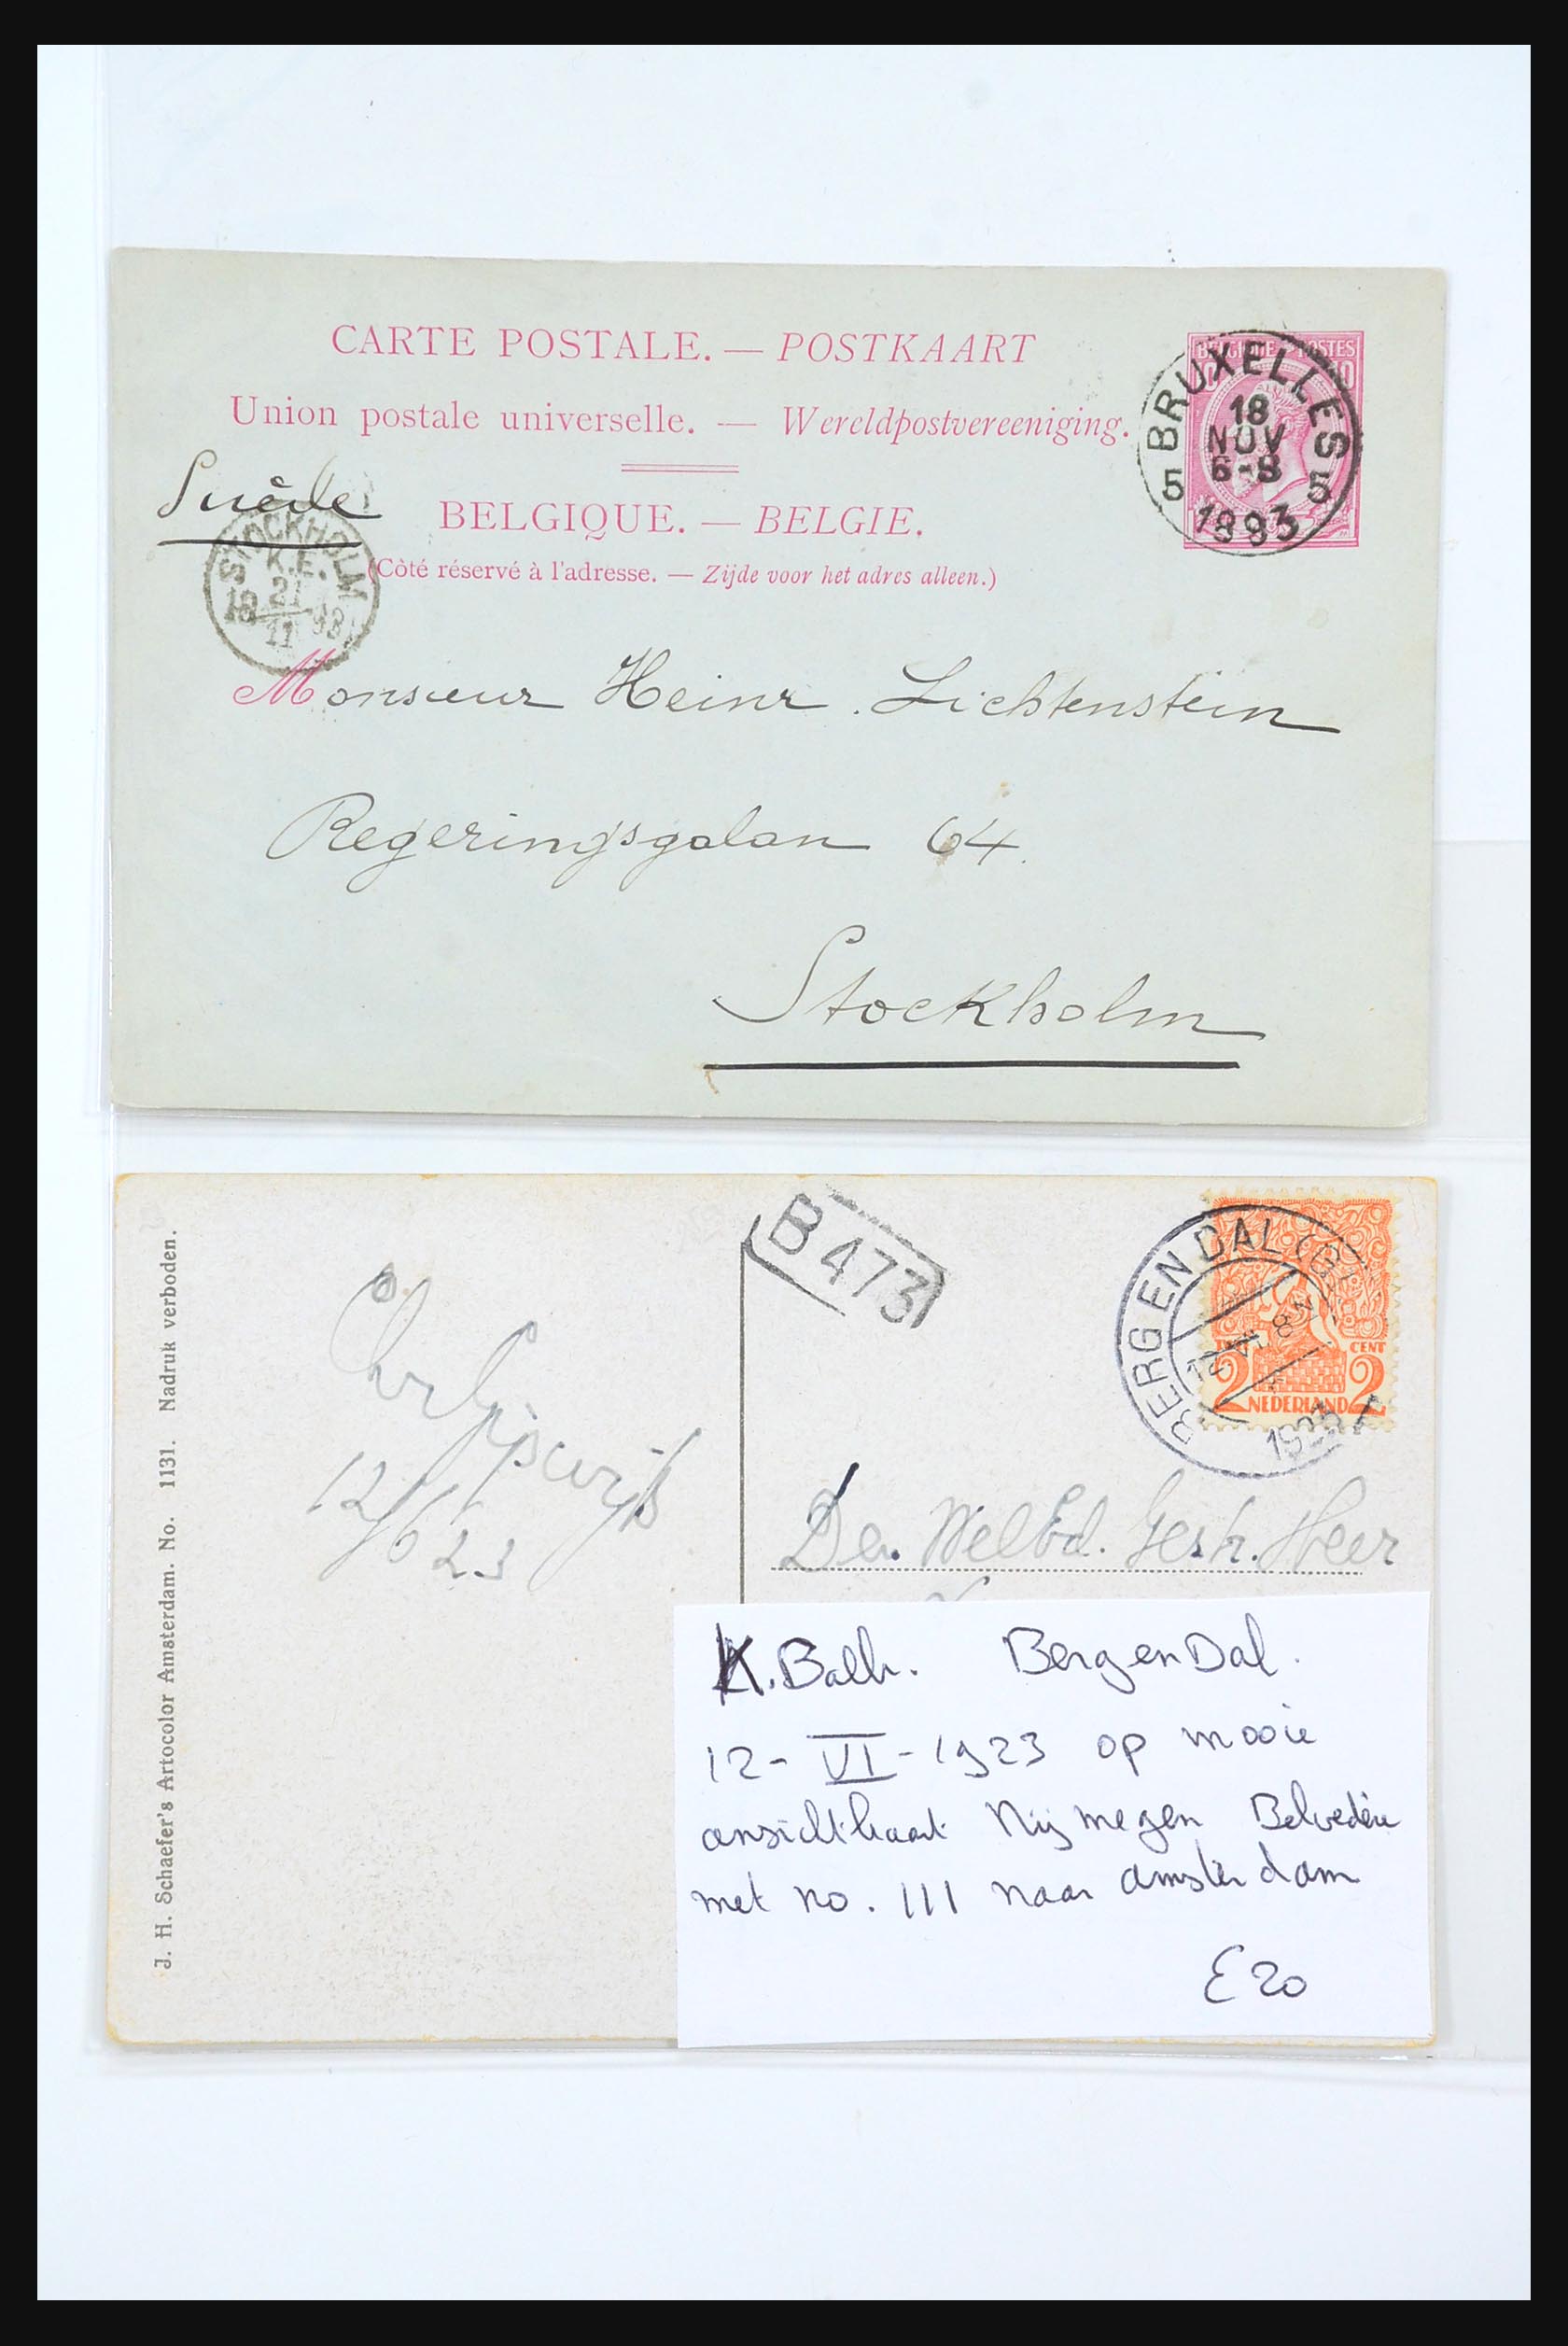 CARTE POSTALE. — POSTKAART
Union postale universelle. — Wereldpostvereeniging.
BELGIQUE POSTES
10 10
BRUXELLES
18
NOV
6-8
5 5
1893
Suède
BELGIQUE. — BELGIE.
(Côté réservé à l'adresse. — Zijde voor het adres alleen.)
STOCKHOLM
K.E.
21
18 93
11
Monsieur Heinr. Lichtenstein
Regeringsgalan 64.
Stockholm
J. H. Schaefer's Artocolor Amsterdam. No. 1131. Nadruk verboden.
B 473
BERG EN DAL (G
12
1923
CENT
2 NEDERLAND 2
12/6 23
Den WelEd. Gestr. Heer
K.Balk. Berg en Dal.
12-VI-1923 op mooie
ansichtkaart Nijmegen Belvedère
met no. 111 naar amsterdam
E 20